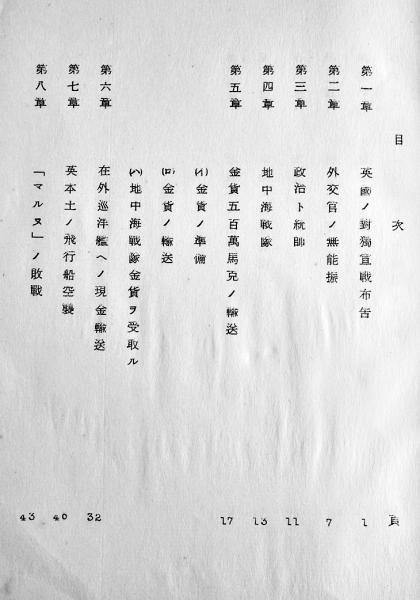 目次 頁
第一章 英國ノ對獨宣戰布告 1
第二章 外交官ノ無能振 7
第三章 政治ト統帥 11
第四章 地中海戰隊 13
第五章 金貨五百萬馬克ノ輸送 17
(イ)金貨ノ準備
(ロ)金貨ノ輸送
(ハ)地中海戰隊金貨ヲ受取ル
第六章 在外巡洋艦ヘノ現金輸送 32
第七章 英本土ノ飛行船空襲 40
第八章 「マルヌ」ノ敗戰 43